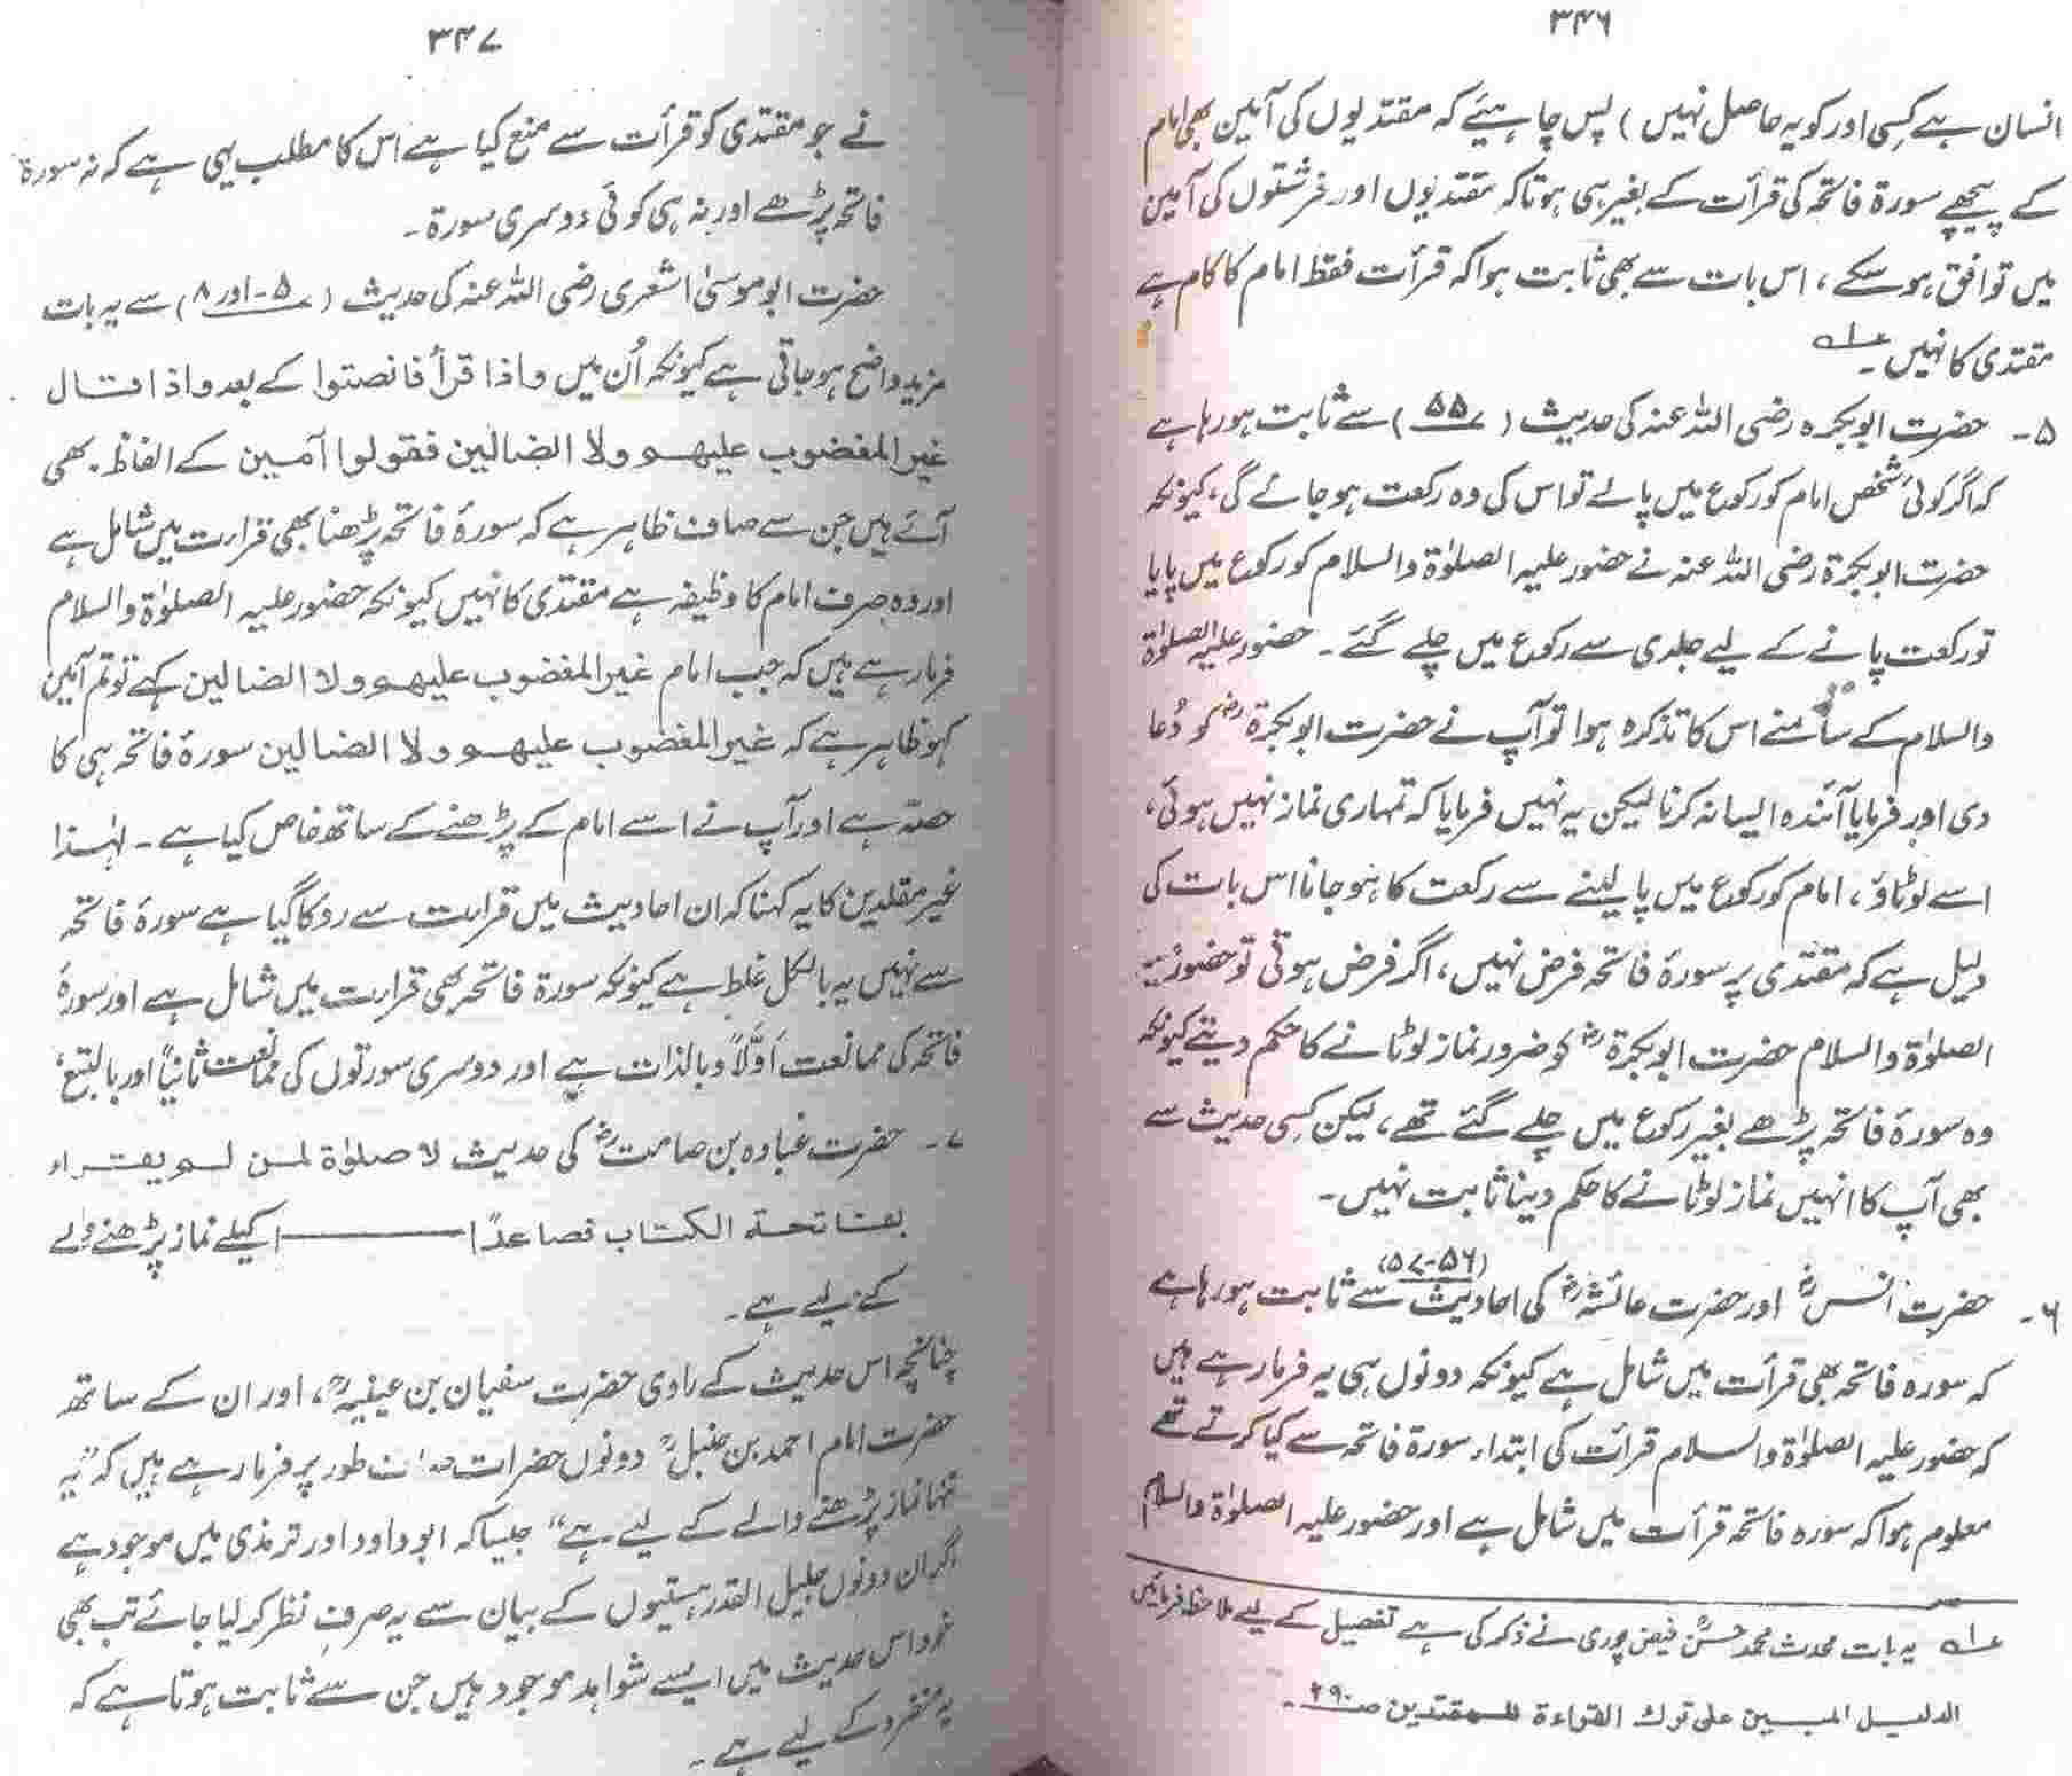 ۳۴۶
انسان ہے کسی اور کو یہ حاصل نہیں) پس چاہیئے کہ مقتدیوں کی آمین بھی امام
کے پیچھے سورۃ فاتحہ کی قرأت کے بغیر ہی ہو تاکہ مقتدیوں اور فرشتوں کی آمین
میں توافق ہو سکے، اس بات سے بھی ثابت ہوا کہ قرأت فقط امام کا کام ہے
مقتدی کا نہیں۔ ؎۱
۵۔ حضرت ابوبکرہ رضی اللہ عنہ کی حدیث (۵۵) سے ثابت ہو رہا ہے
کہ اگر کوئی شخص امام کو رکوع میں پالے تو اس کی وہ رکعت ہو جائے گی، کیونکہ
حضرت ابوبکرۃ رضی اللہ عنہ نے حضور علیہ الصلوٰۃ والسلام کو رکوع میں پایا
تو رکعت پانے کے لیے جلدی سے رکوع میں چلے گئے۔ حضور علیہ الصلوٰۃ
والسلام کے سامنے اس کا تذکرہ ہوا تو آپ نے حضرت ابوبکرۃؓ کو دُعا
دی اور فرمایا آئندہ ایسا نہ کرنا لیکن یہ نہیں فرمایا کہ تمہاری نماز نہیں ہوئی،
اسے لوٹاؤ، امام کو رکوع میں پالینے سے رکعت کا ہو جانا اس بات کی
دلیل ہے کہ مقتدی پر سورۃ فاتحہ فرض نہیں، اگر فرض ہوتی تو حضور علیہ
الصلوٰۃ والسلام حضرت ابوبکرۃؓ کو ضرور نماز لوٹانے کا حکم دیتے کیونکہ
وہ سورۃ فاتحہ پڑھے بغیر رکوع میں چلے گئے تھے، لیکن کسی حدیث سے
بھی آپ کا انہیں نماز لوٹانے کا حکم دینا ثابت نہیں۔
۶۔ حضرت انسؓ اور حضرت عائشہؓ کی احادیث (۵۶-۵۷) سے ثابت ہو رہا ہے
کہ سورہ فاتحہ بھی قرأت میں شامل ہے کیونکہ دونوں ہی یہ فرما رہے ہیں
کہ حضور علیہ الصلوٰۃ والسلام قرأت کی ابتداء سورۃ فاتحہ سے کیا کرتے تھے
معلوم ہوا کہ سورہ فاتحہ قرأت میں شامل ہے اور حضور علیہ الصلوٰۃ والسلام
؎۱ یہ بات محدث محمد حسنؒ فیض پوری نے ذکر کی ہے تفصیل کے لیے ملاحظہ فرمائیں
الدلیل المبین علی ترک القراءۃ للمقتدین صـ۲۹۰۔
۳۴۷
نے جو مقتدی کو قرأت سے منع کیا ہے اس کا مطلب یہی ہے کہ نہ سورۃ
فاتحہ پڑھے اور نہ ہی کوئی دوسری سورۃ۔
حضرت ابوموسیٰ اشعری رضی اللہ عنہ کی حدیث (۵-اور ۸) سے یہ بات
مزید واضح ہو جاتی ہے کیونکہ اُن میں واذا قرأ فانصتوا کے بعد واذا قال
غیر المغضوب علیہم ولا الضالین فقولوا آمین کے الفاظ بھی
آئے ہیں جن سے صاف ظاہر ہے کہ سورۃ فاتحہ پڑھنا بھی قراءت میں شامل ہے
اور وہ صرف امام کا وظیفہ ہے مقتدی کا نہیں کیونکہ حضور علیہ الصلوٰۃ والسلام
فرما رہے ہیں کہ جب امام غیر المغضوب علیہم ولا الضالین کہے تو تم آمین
کہو ظاہر ہے کہ غیر المغضوب علیہم ولا الضالین سورۃ فاتحہ ہی کا
حصہ ہے اور آپ نے اسے امام کے پڑھنے کے ساتھ خاص کیا ہے۔ لہٰذا
غیر مقلدین کا یہ کہنا کہ ان احادیث میں قراءت سے روکا گیا ہے سورۃ فاتحہ
سے نہیں یہ بالکل غلط ہے کیونکہ سورۃ فاتحہ بھی قراءت میں شامل ہے اور سورۃ
فاتحہ کی ممانعت اَوّلاً وبالذات ہے اور دوسری سورتوں کی ممانعت ثانیاً اور بالتبع،
۷۔ حضرت عبادہ بن صامتؓ کی حدیث لا صلوٰۃ لمن لم یقراء
بفاتحۃ الکتاب فصاعدًا ــــــ اکیلے نماز پڑھنے والے
کے لیے ہے۔
چنانچہ اس حدیث کے راوی حضرت سفیان بن عیینہؒ، اور ان کے ساتھ
حضرت امام احمد بن حنبلؒ دونوں حضرات طور پر فرما رہے ہیں کہ "یہ
تنہا نماز پڑھنے والے کے لیے ہے" جیسا کہ ابوداود اور ترمذی میں موجود ہے
اگر ان دونوں جلیل القدر ہستیوں کے بیان سے یہ صرف نظر کر لیا جائے تب بھی
خود اس حدیث میں ایسے شواہد موجود ہیں جن سے ثابت ہوتا ہے کہ
یہ منفرد کے لیے ہے۔